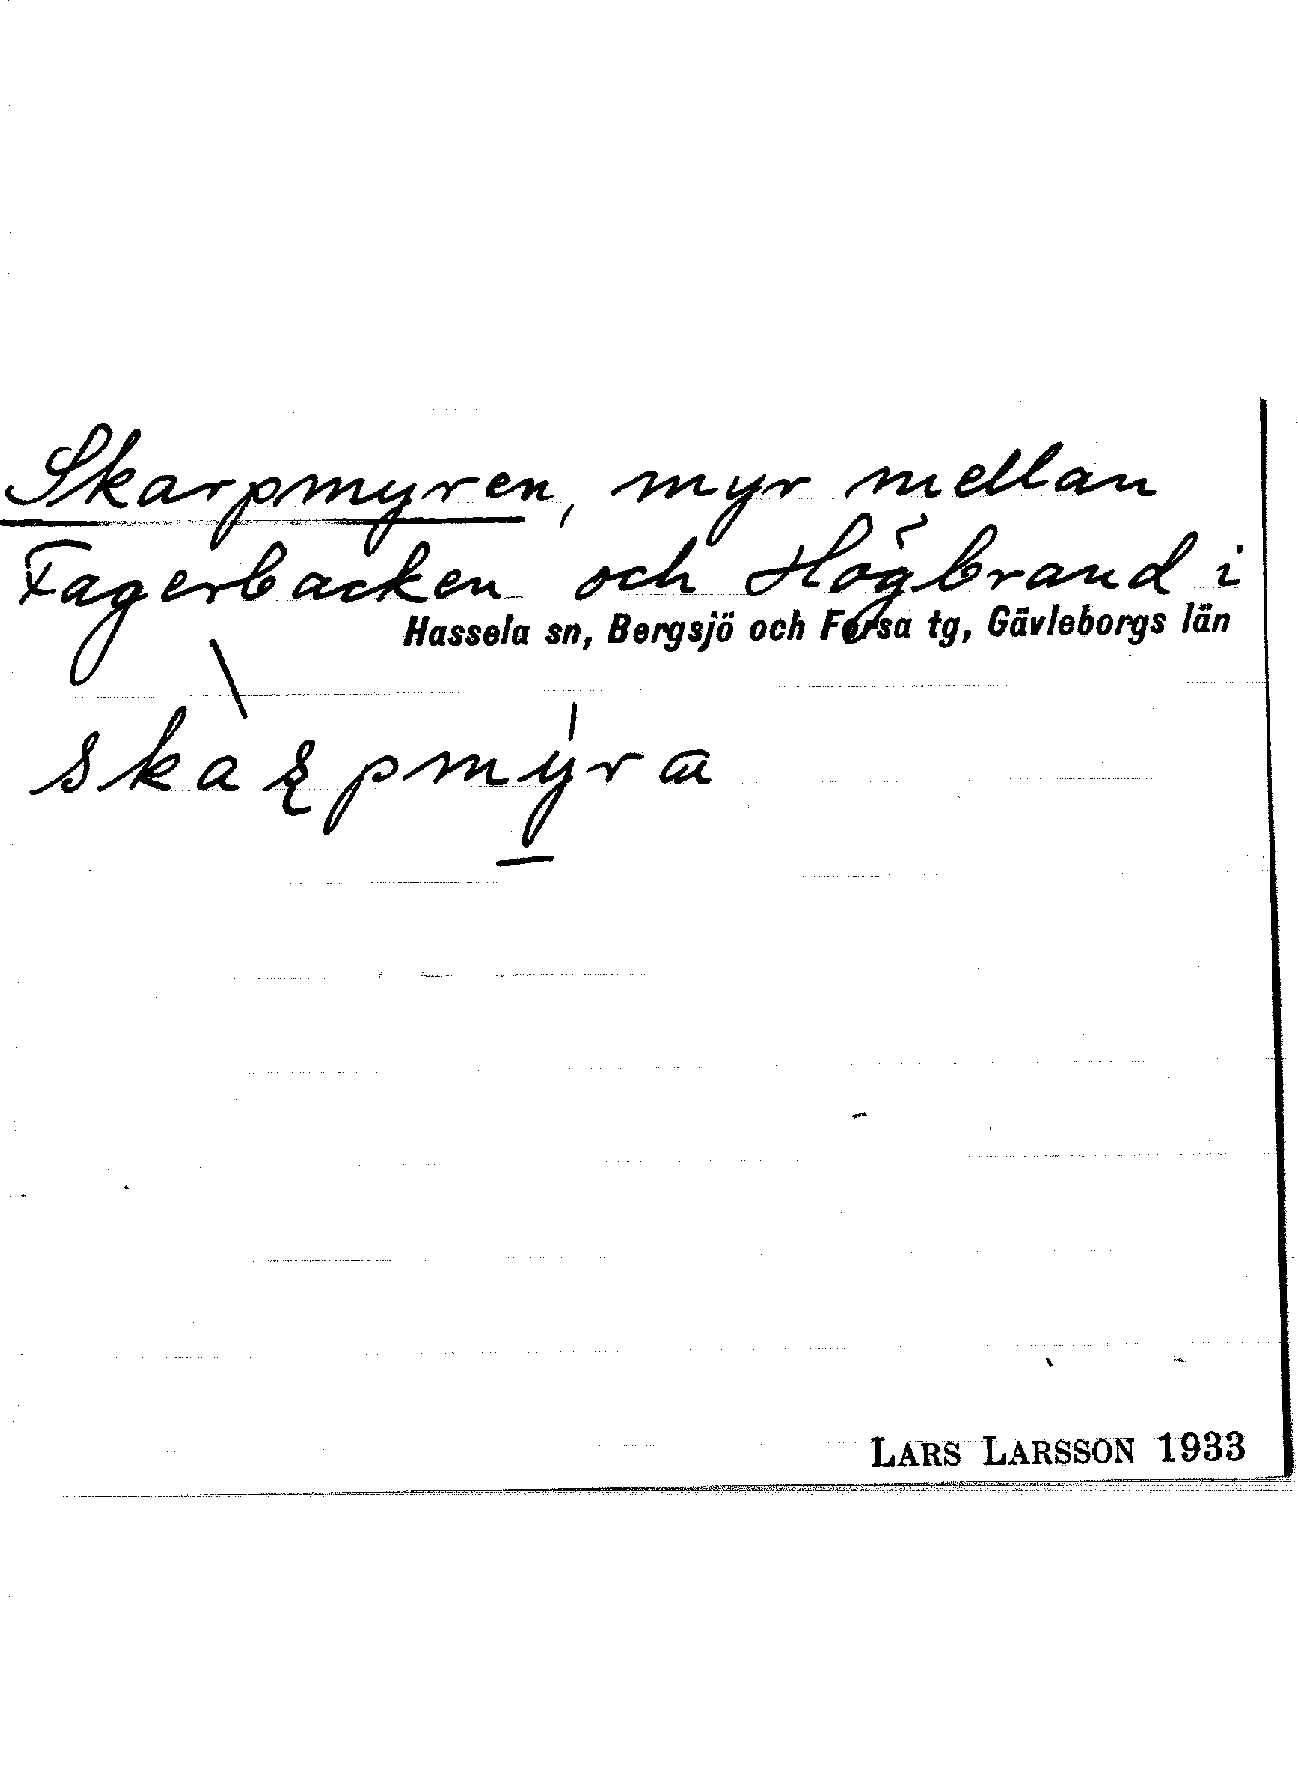 Skarpmyren, myr mellan
Fagerbacken och Högbrand i
Hassela sn, Bergsjö och Forsa tg, Gävleborgs län
LARS LARSSON 1933